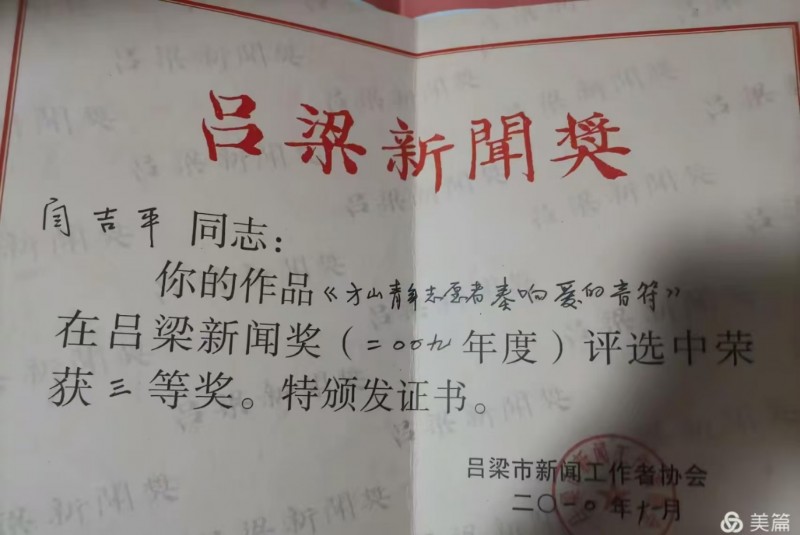 吕梁新聞奖
闫吉平 同志：
你的作品《方山青年志愿者奏响爱的音符》
在吕梁新闻奖（二00九年度）评选中荣
获三等奖。特颁发证书。
吕梁市新闻工作者协会
二〇一〇年十月
美篇